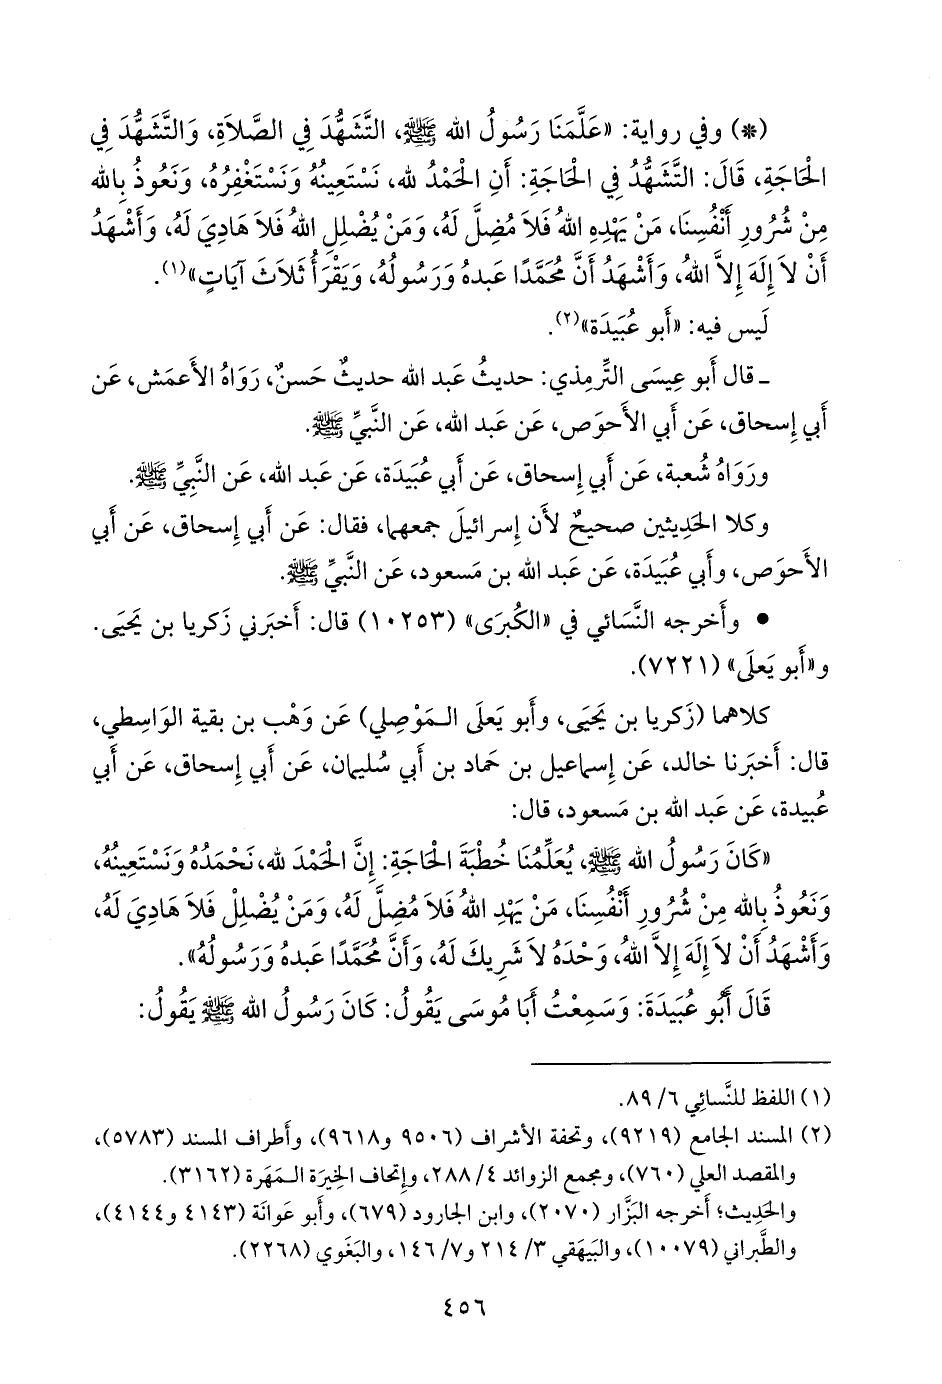 (*) وفي رواية: «عَلَّمَنَا رَسُولُ الله ﷺ، التَّشَهُّدَ فِي الصَّلاَةِ، وَالتَّشَهُّدَ فِي
الحَاجَةِ، قَالَ: التَّشَهُّدُ فِي الحَاجَةِ: أَنِ الحَمْدُ لله، نَسْتَعِينُهُ وَنَسْتَغْفِرُهُ، وَنَعُوذُ بِالله
مِنْ شُرُورِ أَنْفُسِنَا، مَنْ يَهْدِهِ اللهُ فَلاَ مُضِلَّ لَهُ، وَمَنْ يُضْلِلِ اللهُ فَلاَ هَادِيَ لَهُ، وَأَشْهَدُ
أَنْ لاَ إِلَهَ إِلاَّ اللهُ، وَأَشْهَدُ أَنَّ مُحَمَّدًا عَبدهُ وَرَسُولُهُ، وَيَقْرَأُ ثَلاَثَ آيَاتٍ»(١).
لَيس فيه: «أَبو عُبَيدَة»(٢).
ـ قال أَبو عِيسَى التِّرمِذي: حديثُ عَبد الله حديثٌ حَسنٌ، رَوَاهُ الأَعمَش، عَن
أَبي إِسحاق، عَن أَبي الأَحوَص، عَن عَبد الله، عَن النَّبيِّ ﷺ.
ورَوَاهُ شُعبة، عَن أَبي إِسحاق، عَن أَبي عُبَيدَة، عَن عَبد الله، عَن النَّبيِّ ﷺ.
وكلا الحَدِيثين صحيحٌ لأَن إِسرائيلَ جمعهما، فقال: عَن أَبي إِسحاق، عَن أَبي
الأَحوَص، وأَبي عُبَيدَة، عَن عَبد الله بن مَسعود، عَن النَّبيِّ ﷺ.
• وأَخرجه النَّسَائي في «الكُبرَى» (١٠٢٥٣) قال: أَخبَرني زَكريا بن يَحيَى.
و«أَبو يَعلَى» (٧٢٢١).
كلاهما (زَكريا بن يَحيَى، وأَبو يَعلَى المَوْصِلي) عَن وَهْب بن بقية الوَاسِطي،
قال: أَخبَرنا خالد، عَن إِسماعيل بن حَماد بن أَبي سُليمان، عَن أَبي إِسحاق، عَن أَبي
عُبيدة، عَن عَبد الله بن مَسعود، قال:
«كَانَ رَسُولُ الله ﷺ، يُعَلِّمُنَا خُطْبَةَ الحَاجَةِ: إِنَّ الحَمْدَ لله، نَحْمَدُهُ وَنَسْتَعِينُهُ،
وَنَعُوذُ بِالله مِنْ شُرُورِ أَنْفُسِنَا، مَنْ يَهْدِ اللهُ فَلاَ مُضِلَّ لَهُ، وَمَنْ يُضْلِلْ فَلاَ هَادِيَ لَهُ،
وَأَشْهَدُ أَنْ لاَ إِلَهَ إِلاَّ اللهُ، وَحْدَهُ لاَ شَرِيكَ لَهُ، وَأَنَّ مُحَمَّدًا عَبدهُ وَرَسُولُهُ».
قَالَ أَبُو عُبَيدَةَ: وَسَمِعْتُ أَبَا مُوسَى يَقُولُ: كَانَ رَسُولُ الله ﷺ يَقُولُ:
(١) اللفظ للنَّسائِي ٦/ ٨٩.
(٢) المسند الجامع (٩٢١٩)، وتحفة الأشراف (٩٥٠٦ و٩٦١٨)، وأطراف المسند (٥٧٨٣)،
والمقصد العلي (٧٦٠)، ومجمع الزوائد ٤/ ٢٨٨، وإتحاف الخِيرَة المَهَرة (٣١٦٢).
والحَدِيث؛ أخرجه البَزَّار (٢٠٧٠)، وابن الجارود (٦٧٩)، وأَبو عَوانَة (٤١٤٣ و٤١٤٤)،
والطَّبراني (١٠٠٧٩)، والبَيهَقي ٣/ ٢١٤ و٧/ ١٤٦، والبَغَوي (٢٢٦٨).
٤٥٦